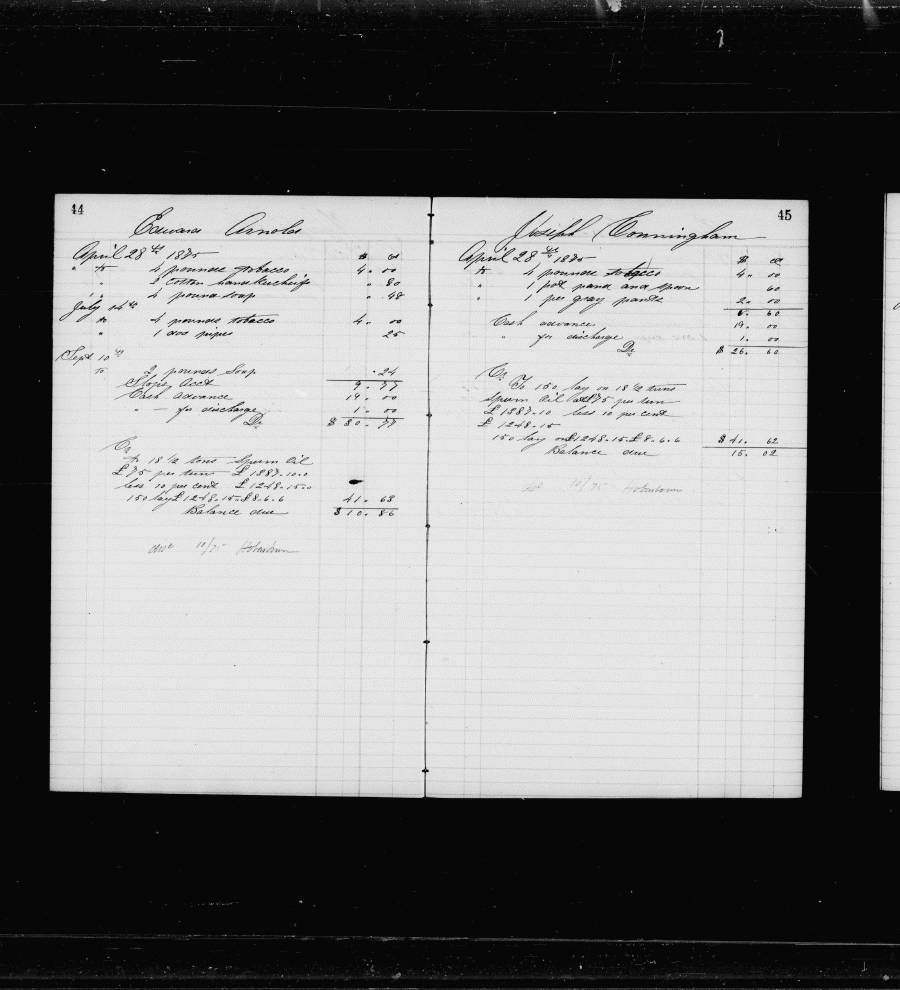 44
Edward Arnold
$ cts
April 28th 1875
" to 4 pounds tobacco 4 . 00
" 2 cotton handkerchiefs " 80
" 4 pound soap " 48
July 14th
to 4 pounds tobacco 4 . 00
" 1 doz pipes 25
Sept 10th
to 2 pounds Soap . 24
Slops Acct 9 . 77
Cash advance 19 . 00
" — for discharge 1 . 00
Dr $ 30 . 77
Cr
18 1/2 tons Sperm Oil
£ 75 per tun £ 1387-10-0
less 10 per cent £ 1248-15-0
150 lay £ 1248-15-£8-6-6 41 . 63
Balance due $ 10 . 86
10/75
45
Joseph Conningham
$ cts
April 28th 1875
to 4 pounds tobacco 4 . 00
" 1 pot pan and spoon 60
" 1 pr gray pants 2 . 00
6 . 60
Cash advance 19 . 00
" for discharge 1 . 00
Dr $ 26 . 60
Cr
To 150 lay on 18 1/2 tuns
Sperm Oil at £75 per tun
£ 1387-10 less 10 per cent
£ 1248-15
150 lay on £1248-15-£8-6-6 $ 41 . 62
Balance due 15 . 02
10/75